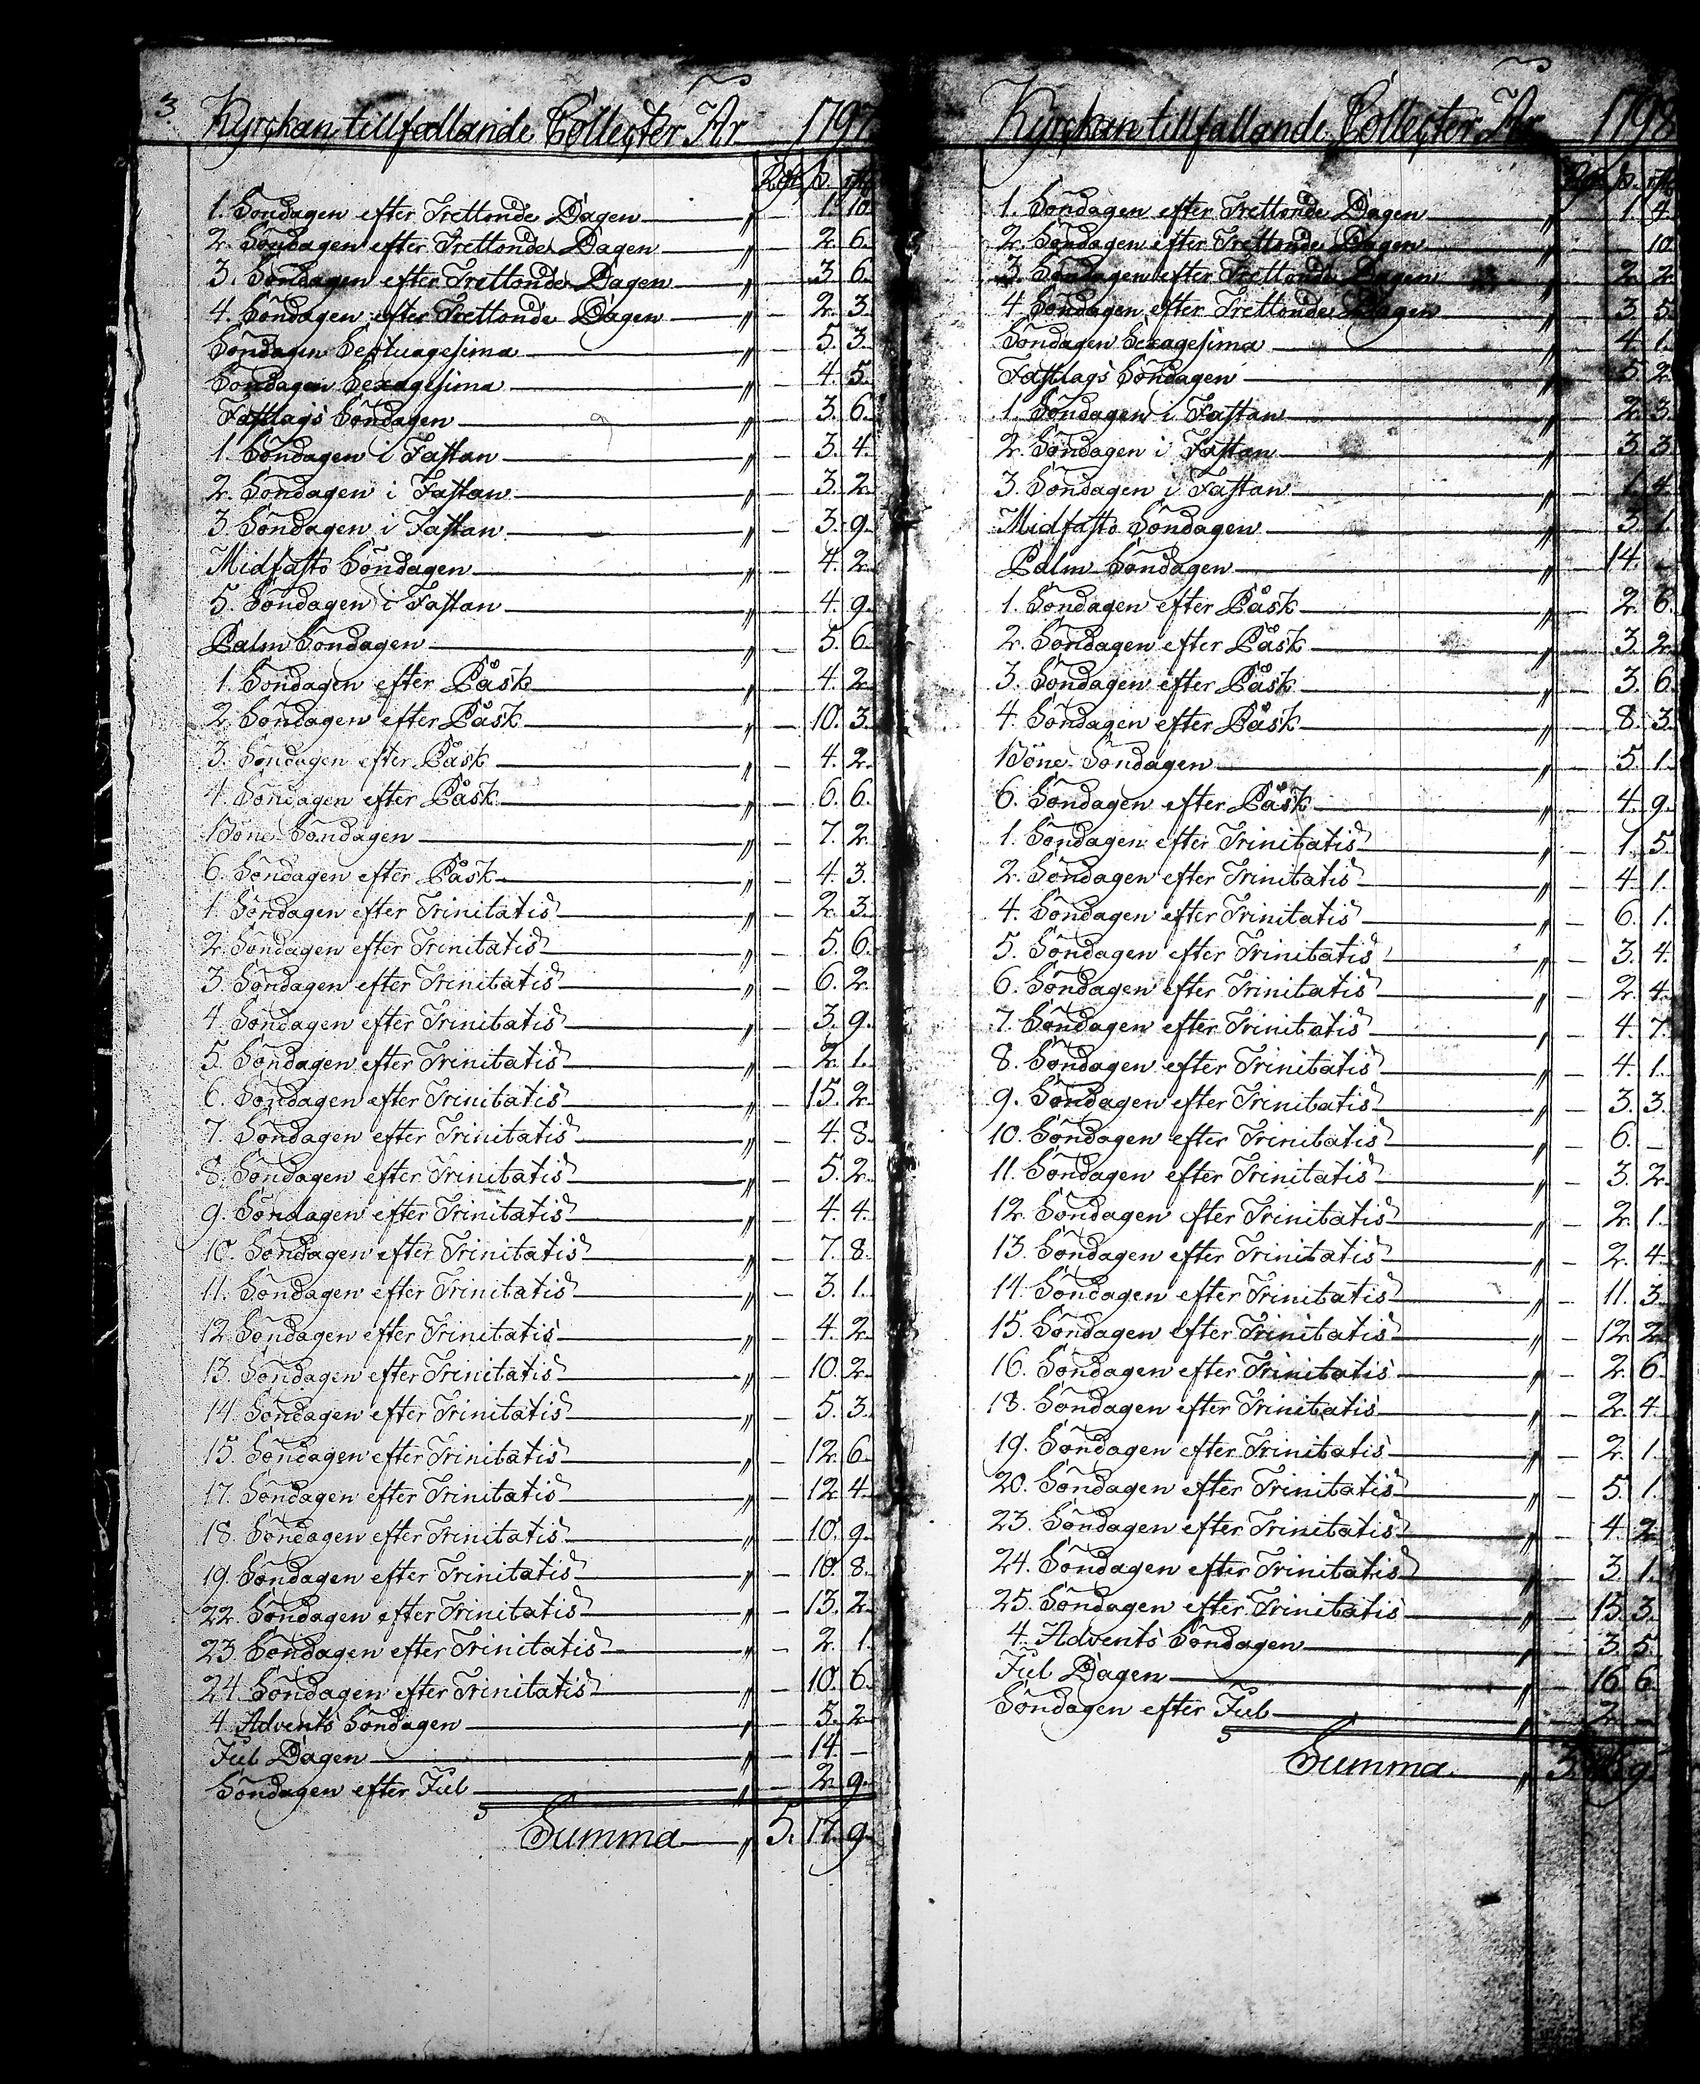 3.
Kyrckan tillfallande Collecter År 1797
Rdr. ß. rst.
1. Söndagen efter Trettonde Dagen „ — 1. 10.
2. Söndagen efter Trettonde Dagen „ — 2. 6.
3. Söndagen efter Trettonde Dagen „ — 3. 6.
4. Söndagen efter Trettonde Dagen „ — 2. 3.
Söndagen Septuagesima „ — 5. 3.
Söndagen Sexagesima „ — 4. 5.
Fastlags Söndagen „ — 3. 6.
1. Söndagen i Fastan „ — 3. 4.
2. Söndagen i Fastan „ — 3. 2.
3. Söndagen i Fastan „ — 3. 9.
Midfasto Söndagen „ — 4. 2.
5. Söndagen i Fastan „ — 4. 9.
Palm Söndagen „ — 5. 6.
1. Söndagen efter Påsk „ — 4. 2.
2. Söndagen efter Påsk „ — 10. 3.
3. Söndagen efter Påsk „ — 4. 2.
4. Söndagen efter Påsk „ — 6. 6.
Böne Söndagen „ — 7. 2.
6. Söndagen efter Påsk „ — 4. 3.
1. Söndagen efter Trinitatis „ — 2. 3.
2. Söndagen efter Trinitatis „ — 5. 6.
3. Söndagen efter Trinitatis „ — 6. 2.
4. Söndagen efter Trinitatis „ — 3. 9.
5. Söndagen efter Trinitatis „ — 2. 1.
6. Söndagen efter Trinitatis „ — 15. 2.
7. Söndagen efter Trinitatis „ — 4. 8.
8. Söndagen efter Trinitatis „ — 5. 2.
9. Söndagen efter Trinitatis „ — 4. 4.
10. Söndagen efter Trinitatis „ — 7. 8.
11. Söndagen efter Trinitatis „ — 3. 1.
12. Söndagen efter Trinitatis „ — 4. 2.
13. Söndagen efter Trinitatis „ — 10. 2.
14. Söndagen efter Trinitatis „ — 5. 3.
15. Söndagen efter Trinitatis „ — 12. 6.
17. Söndagen efter Trinitatis „ — 12. 4.
18. Söndagen efter Trinitatis „ — 10. 9.
19. Söndagen efter Trinitatis „ — 10. 8.
22. Söndagen efter Trinitatis „ — 13. 2.
23. Söndagen efter Trinitatis „ — 2. 1.
24. Söndagen efter Trinitatis „ — 10. 6.
4. Advents Söndagen „ — 5. 2.
Jul Dagen „ — 14. —
Söndagen efter Jul „ — 2. 9.
Summa „ 5. 17. 9.
Kyrckan tillfallande Collecter År 1798
1. Söndagen efter Trettonde Dagen „ — 1. 4.
2. Söndagen efter Trettonde Dagen „ — — 10.
3. Söndagen efter Trettonde Dagen „ — 2. 2.
4. Söndagen efter Trettonde Dagen „ — 3. 5.
Söndagen Sexagesima „ — 4. 1.
Fastlags Söndagen „ — 5. 2.
1. Söndagen i Fastan „ — 2. 3.
2. Söndagen i Fastan „ — 3. 3.
3. Söndagen i Fastan „ — 1. 4.
Midfasto Söndagen „ — 3. 1.
Palm Söndagen „ — 14. —
1. Söndagen efter Påsk „ — 2. 6.
2. Söndagen efter Påsk „ — 3. 2.
3. Söndagen efter Påsk „ — 3. 6.
4. Söndagen efter Påsk „ — 8. 3.
Böne Söndagen „ — 5. 1.
6. Söndagen efter Påsk „ — 4. 9.
1. Söndagen efter Trinitatis „ — 1. 5.
2. Söndagen efter Trinitatis „ — 4. 1.
4. Söndagen efter Trinitatis „ — 6. 1.
5. Söndagen efter Trinitatis „ — 3. 4.
6. Söndagen efter Trinitatis „ — 2. 4.
7. Söndagen efter Trinitatis „ — 4. 7.
8. Söndagen efter Trinitatis „ — 4. 1.
9. Söndagen efter Trinitatis „ — 3. 3.
10. Söndagen efter Trinitatis „ — 6. —
11. Söndagen efter Trinitatis „ — 3. 2.
12. Söndagen efter Trinitatis „ — 2. 1.
13. Söndagen efter Trinitatis „ — 2. 4.
14. Söndagen efter Trinitatis „ — 11. 3.
15. Söndagen efter Trinitatis „ — 12. 2.
16. Söndagen efter Trinitatis „ — 2. 6.
18. Söndagen efter Trinitatis „ — 2. 4.
19. Söndagen efter Trinitatis „ — 2. 1.
20. Söndagen efter Trinitatis „ — 5. 1.
23. Söndagen efter Trinitatis „ — 4. 2.
24. Söndagen efter Trinitatis „ — 3. 1.
25. Söndagen efter Trinitatis „ — 15. 3.
4. Advents Söndagen „ — 3. 5.
Jul Dagen „ — 16. 6.
Söndagen efter Jul „ — 2. —
Summa „ 3. 9.